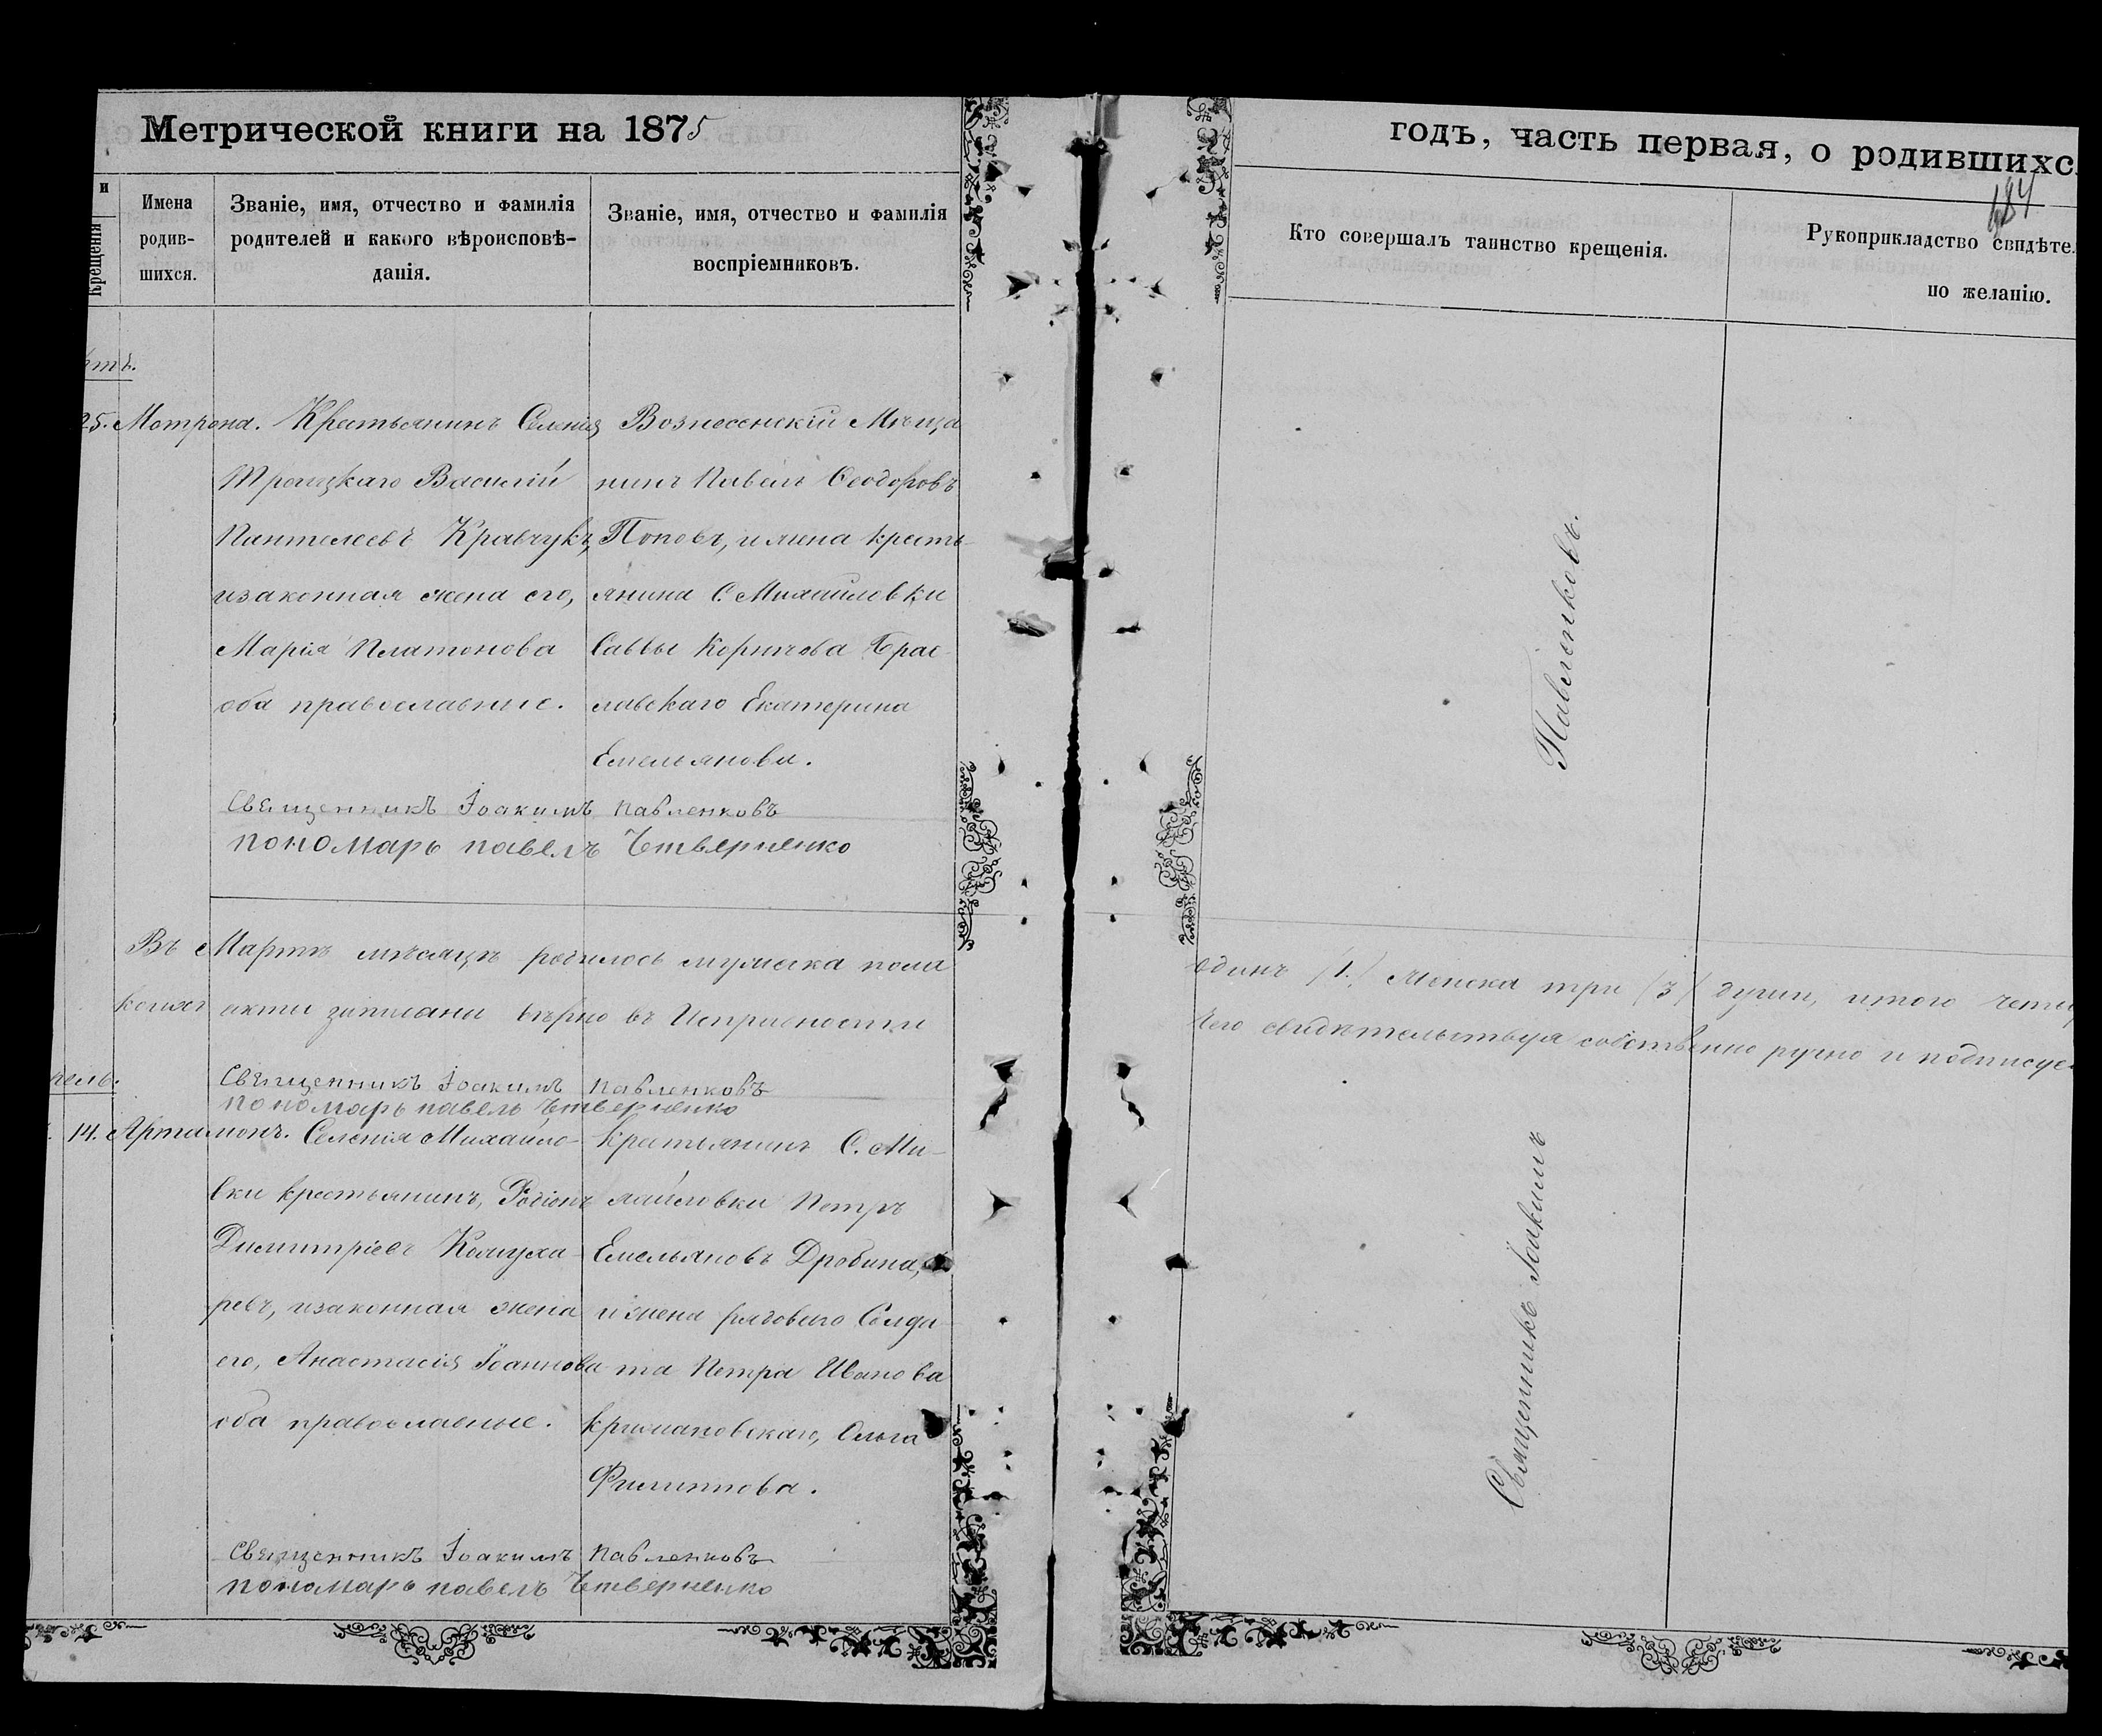 Метрической книги на 1875
годъ, часть первая, о родившихс
184
и
Крещенія
Имена
родив-
шихся.
Званіе, имя, отчество и фамилія
родителей и какого вѣроисповѣ-
данія.
Званіе, имя, отчество и фамилія
воспріемниковъ.
Кто совершалъ таинство крещенія.
Рукоприкладство свидѣте
по желанію.
ртъ.
25. Мотрона. Крестьянинъ Селенія
Троицкаго Василій
Пантелеевъ Кравчукъ,
и законная жена его,
Марія Платонова
оба православные.
Вознесенскій Мѣща
нинъ Павелъ Ѳеодоровъ
Поповъ, и жена кресть-
янина С. Михайловки
Саввы Брас-
лавскаго Екатерина
Емельянова.
Священникъ Іоакимъ Павленковъ
пономарь павелъ Четверненко
Въ Мартѣ мѣсяцѣ родилось мужеска пола
одинъ /1./ женска три /3/ души, итого четы
акти записани вѣрно въ Исправности
чего свидѣтельствуя собственно ручно и подписуе
Священникъ Іоакимъ Павленковъ
пономарь павелъ Четверненко
рель.
14. Артамонъ. Селенія Михайло-
вки крестьянинъ, Родіонъ
Димитріевъ Камуха-
ревъ, и законная жена
его, Анастасія Іоаннова
оба православные.
Крестьянинъ С. Ми-
хайловки Петръ
Емельяновъ Дробина,
и жена рядового Солда-
та Петра Иванова
Ольга
Филиппова.
Священникъ Іоакимъ Павленковъ
пономарь павелъ Четверненко
Священникъ Іоакимъ
Павленковъ.